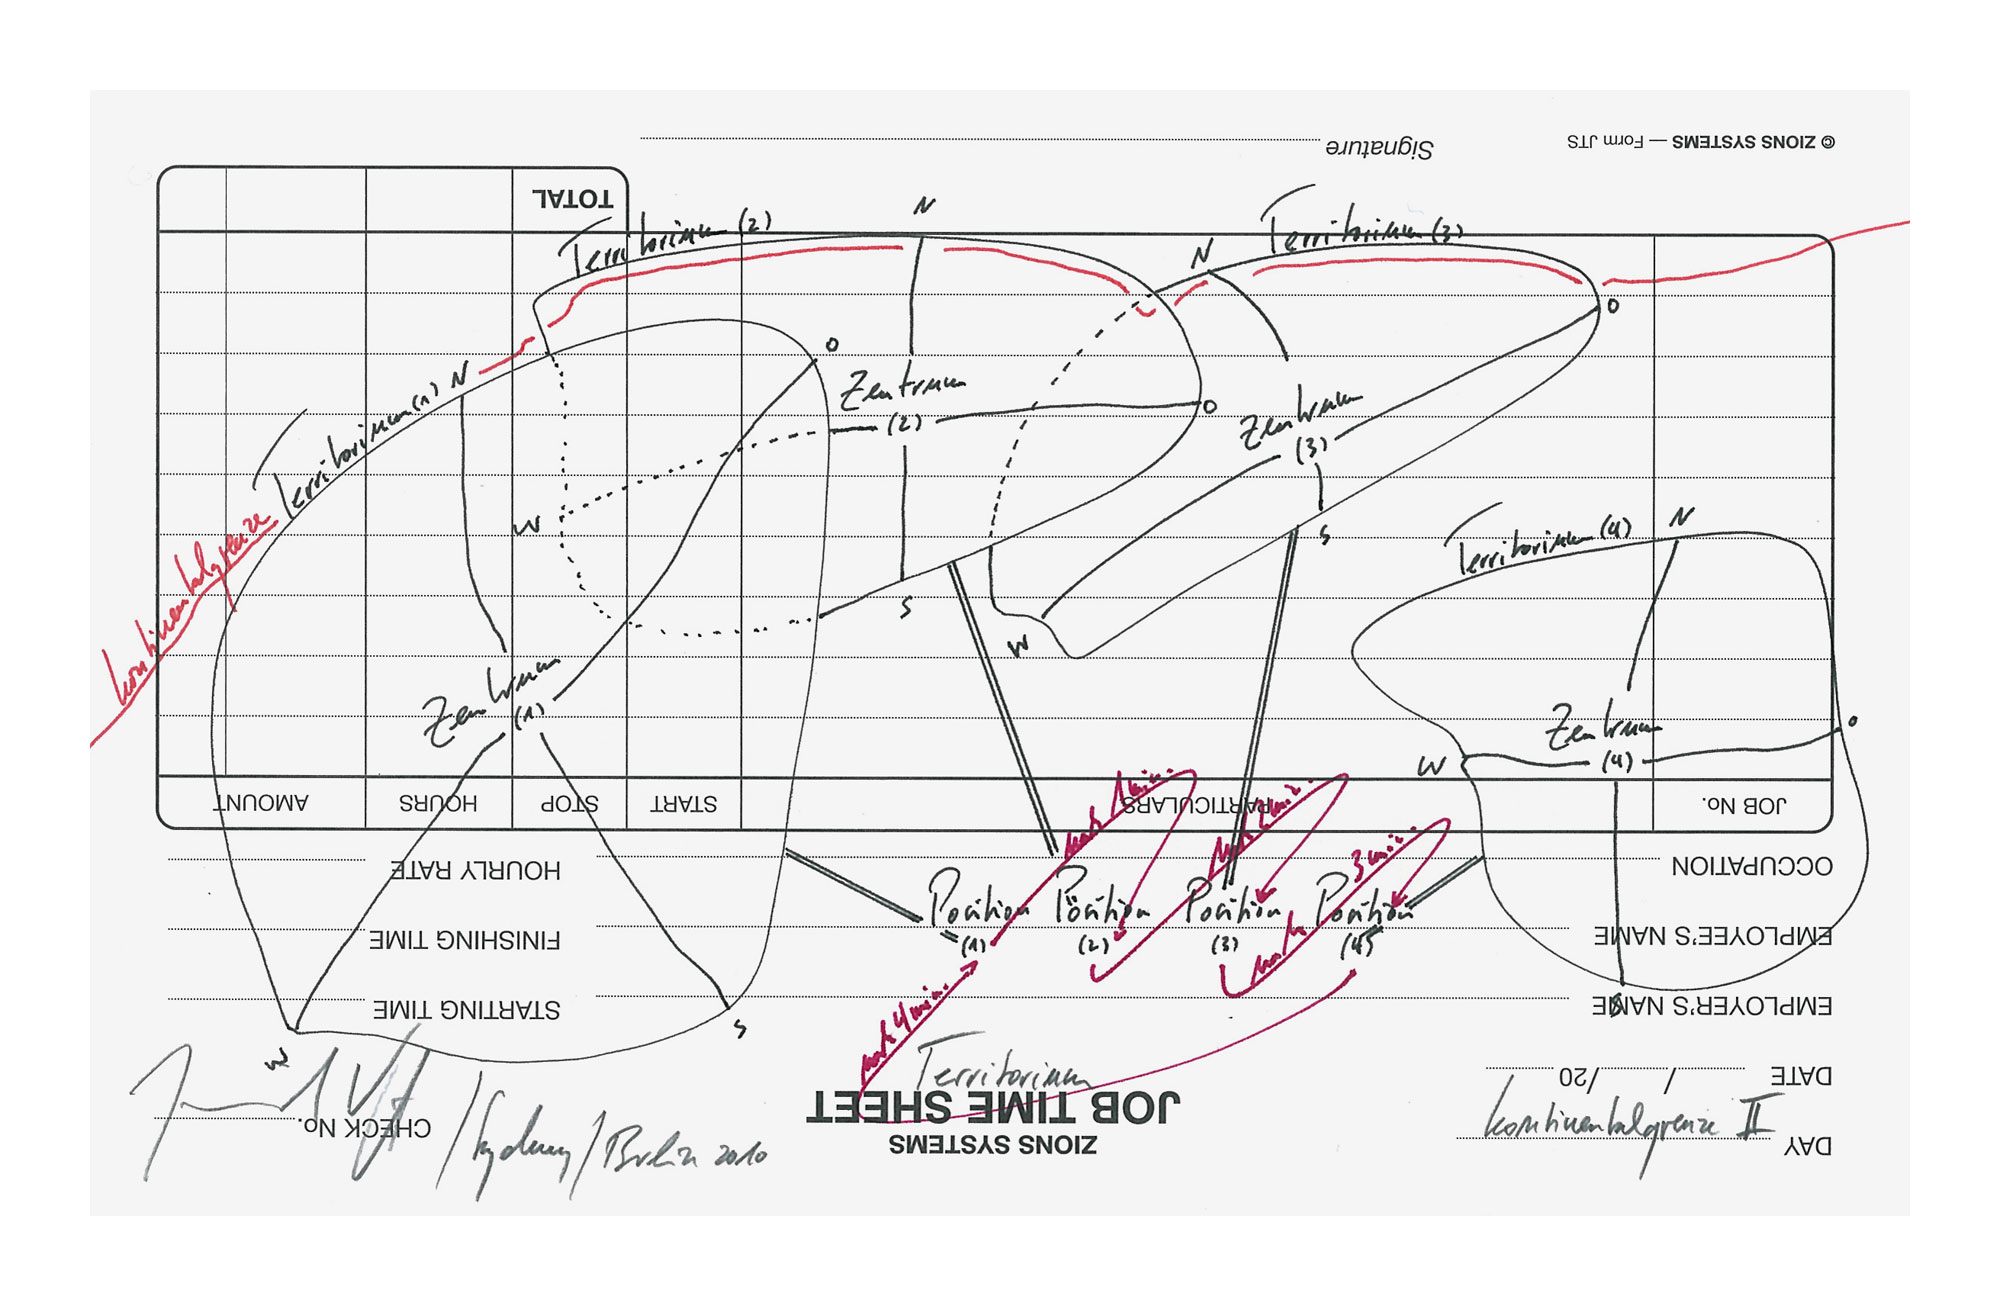 Signature
© ZIONS SYSTEMS — Form JTS
TOTAL
Territorium (2)
N
Territorium (3)
N
O
Territorium (1)
N
O
Zentrum
(2)
O
Zentrum
(3)
W
S
S
W
Kontinentalgrenze
Territorium (4)
N
Zentrum
(1)
Zentrum
(4)
W
O
AMOUNT
HOURS
STOP
START
PARTICULARS
JOB No.
nach 1 min.
nach 2 min.
nach 3 min.
HOURLY RATE
OCCUPATION
Position
(1)
Position
(2)
Position
(3)
Position
(4)
FINISHING TIME
EMPLOYEE'S NAME
nach 4 min.
STARTING TIME
EMPLOYER'S NAME
S
S
W
Territorium
DATE / /20
JOB TIME SHEET
CHECK No.
/ Sydney / Berlin 2010
ZIONS SYSTEMS
Kontinentalgrenze II
DAY